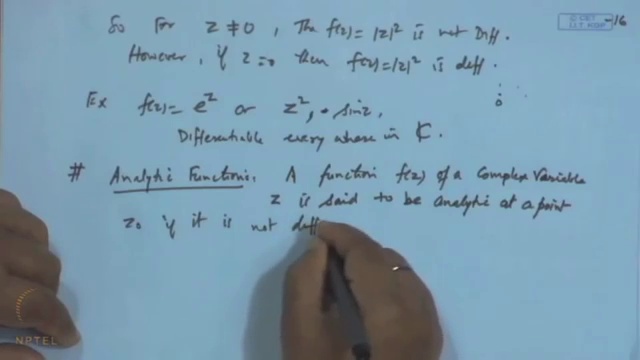 So For z ≠ 0, The f(z) = |z|² is not Diff.
However, if z = 0 then f(z) = |z|² is diff.
Ex f(z) = e^z or z², sin z,
Differentiable every where in ₵.
# Analytic Function: A function f(z) of a Complex Variable
z is said to be analytic at a point
z₀ if it is not diff
© CET
I.I.T. KGP
-16
NPTEL